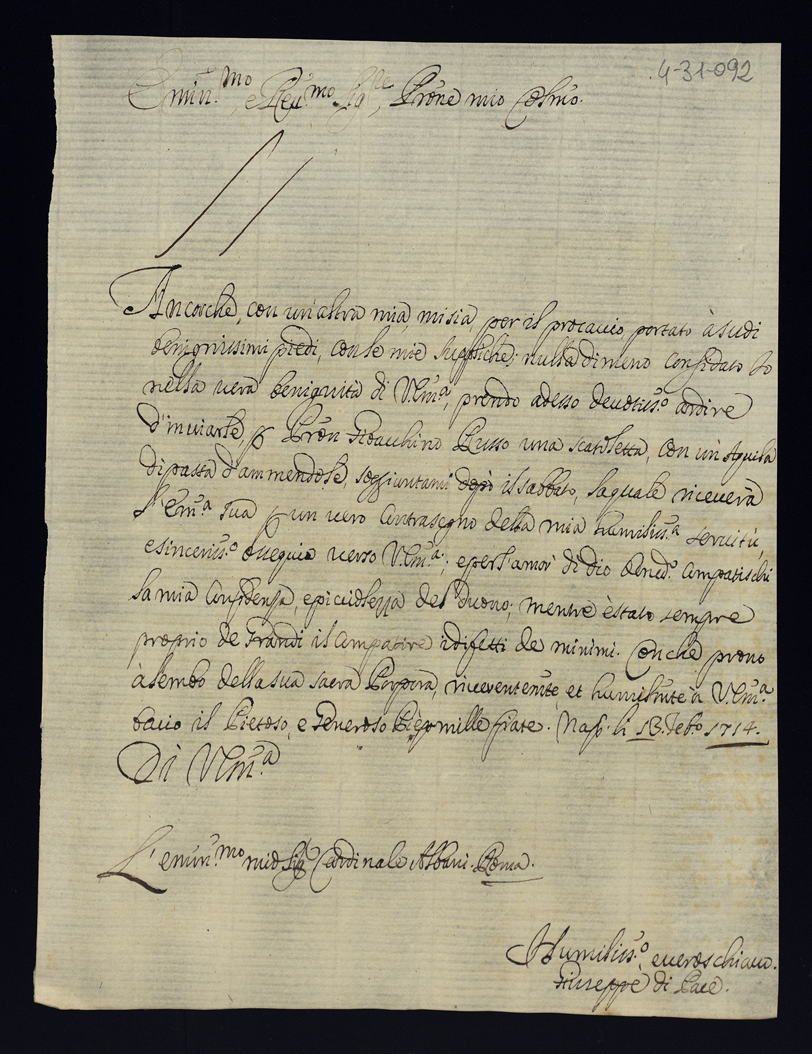 4-31-092
Emin.mo e Reu.mo Sig.re, Prone mio Colmo.
Ancorche, con un'altra mia, misia, per il procaccio portato à sudi
benignissimi piedi, con le mie suppliche; nulla di meno confidato Io
nella vera benignità di V.Em.a, prendo adesso deuotiss.o ardire
d'inviarle, p Pron Gioacchino Russo una scatoletta, con un'Aquila
di pasta d'ammendole, soggiuntami dopò il sabbato, laquale riceverà
l'Em.a sua p un vero Contrasegno della mia humiliss.a servitù,
e sinceriss.o Ossequio verso V.Em.a; e per l'amor di dio bened.o Compatischi
la mia Confidenza, e picciolezza del duono; mentre è stato sempre
proprio de Grandi il Compatire i difetti de minimi. Con che prono
à lembo della sua sacra Porpora, riverentemte, et humilmte à V.Em.a
bacio il Pietoso, e Generoso Piè p mille fiate. Nap. li 13. Febo 1714.
Di V.Em.a
L'emin.mo mio Sig.r Cardinale Albani. Roma.
Humiliss.o e uero schiauo.
Giuseppe di Pace.